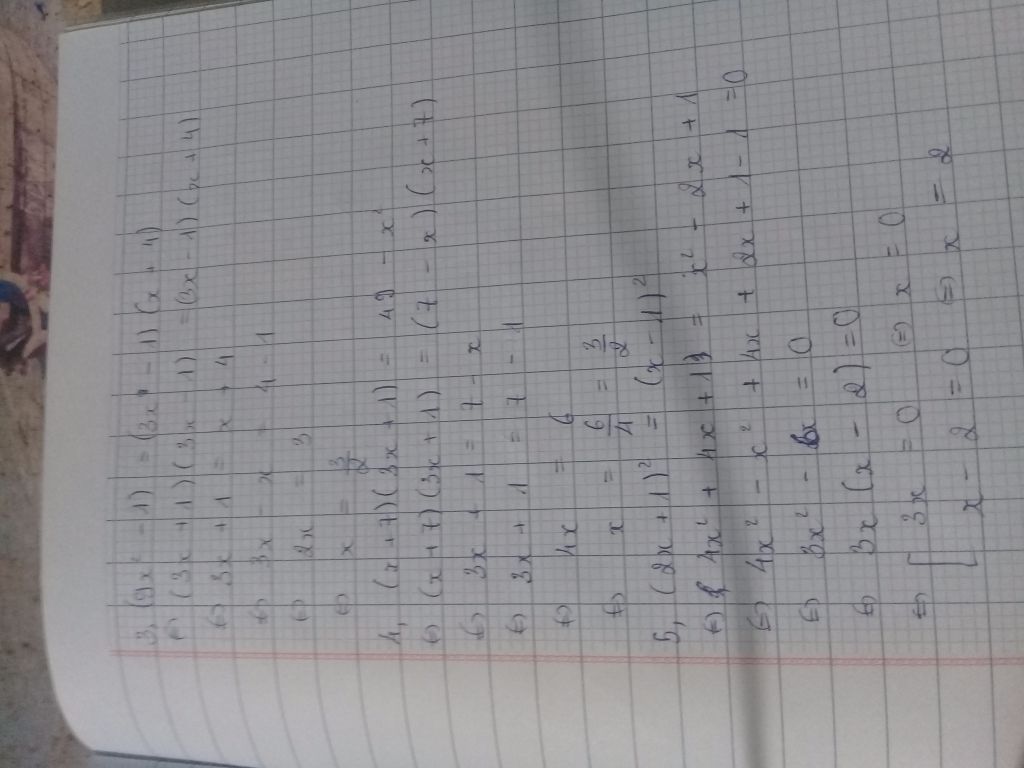 3, (9x² - 1) = (3x - 1)(x + 4)
⇔ (3x + 1)(3x - 1) = (3x - 1)(x + 4)
⇔ 3x + 1 = x + 4
⇔ 3x - x = 4 - 1
⇔ 2x = 3
⇔ x = 3/2
4, (x + 7)(3x + 1) = 49 - x²
⇔ (x + 7)(3x + 1) = (7 - x)(x + 7)
⇔ 3x + 1 = 7 - x
⇔ 3x + 1 = 7 - 1
⇔ 4x = 6
⇔ x = 6/4 = 3/2
5, (2x + 1)² = (x - 1)²
⇔ 4x² + 4x + 1 = x² - 2x + 1
⇔ 4x² - x² + 4x + 2x + 1 - 1 = 0
⇔ 3x² - 6x = 0
⇔ 3x(x - 2) = 0
⇔ [ 3x = 0 ⇔ x = 0
x - 2 = 0 ⇔ x = 2